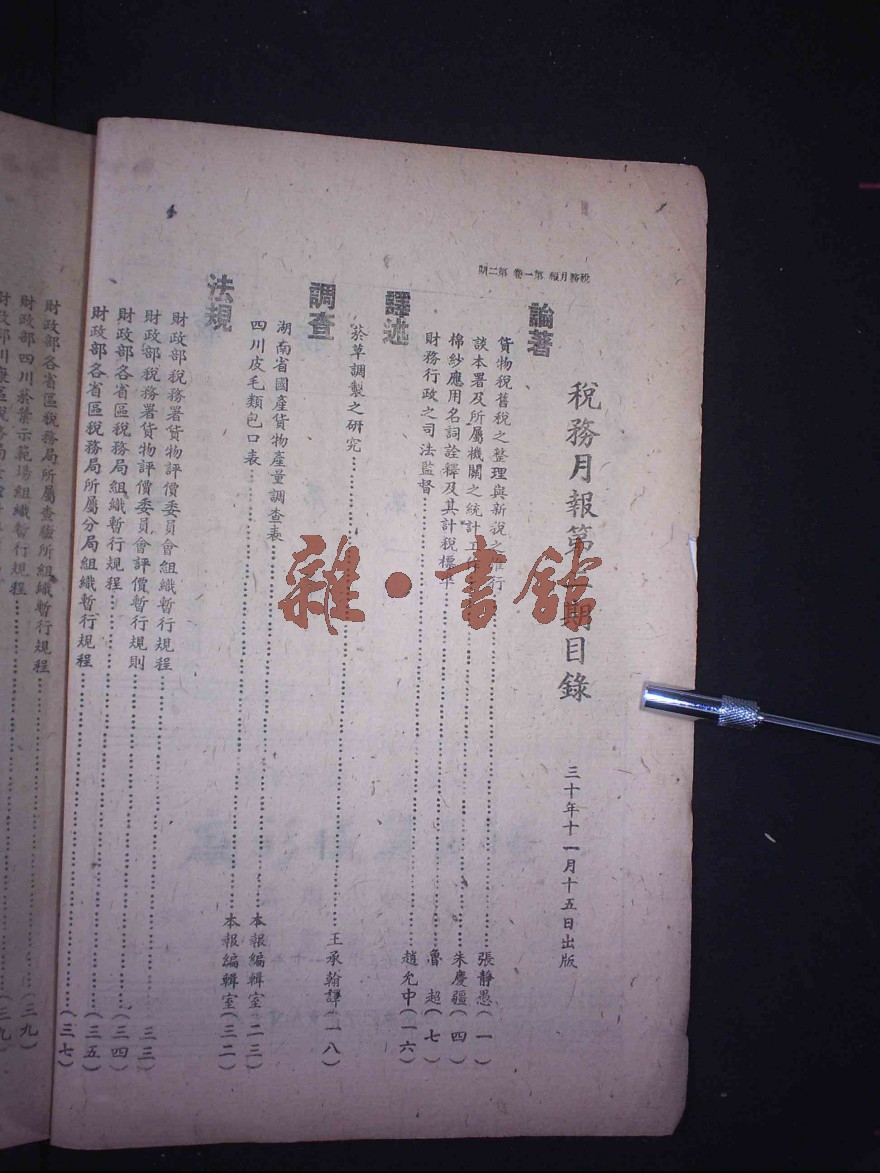 稅務月報 第一卷 第二期
稅務月報第二期目錄
三十年十一月十五日出版
論著
貨物稅舊稅之整理與新稅之推行……張靜愚(一)
談本署及所屬機關之統計工作……朱慶疆(四)
棉紗應用名詞詮釋及其計稅標準……魯 超(七)
財務行政之司法監督……趙允中(一六)
譯述
菸草調製之研究……王承翰譯(一八)
調查
湖南省國產貨物產量調查表……本報編輯室(二三)
四川皮毛類包口表……本報編輯室(三二)
法規
財政部稅務署貨物評價委員會組織暫行規程……(三三)
財政部稅務署貨物評價委員會評價暫行規則……(三四)
財政部各省區稅務局組織暫行規程……(三五)
財政部各省區稅務局所屬分局組織暫行規程……(三七)
財政部各省區稅務局所屬查驗所組織暫行規程……(三九)
財政部四川菸葉示範場組織暫行規程……(三九)
雜·書館